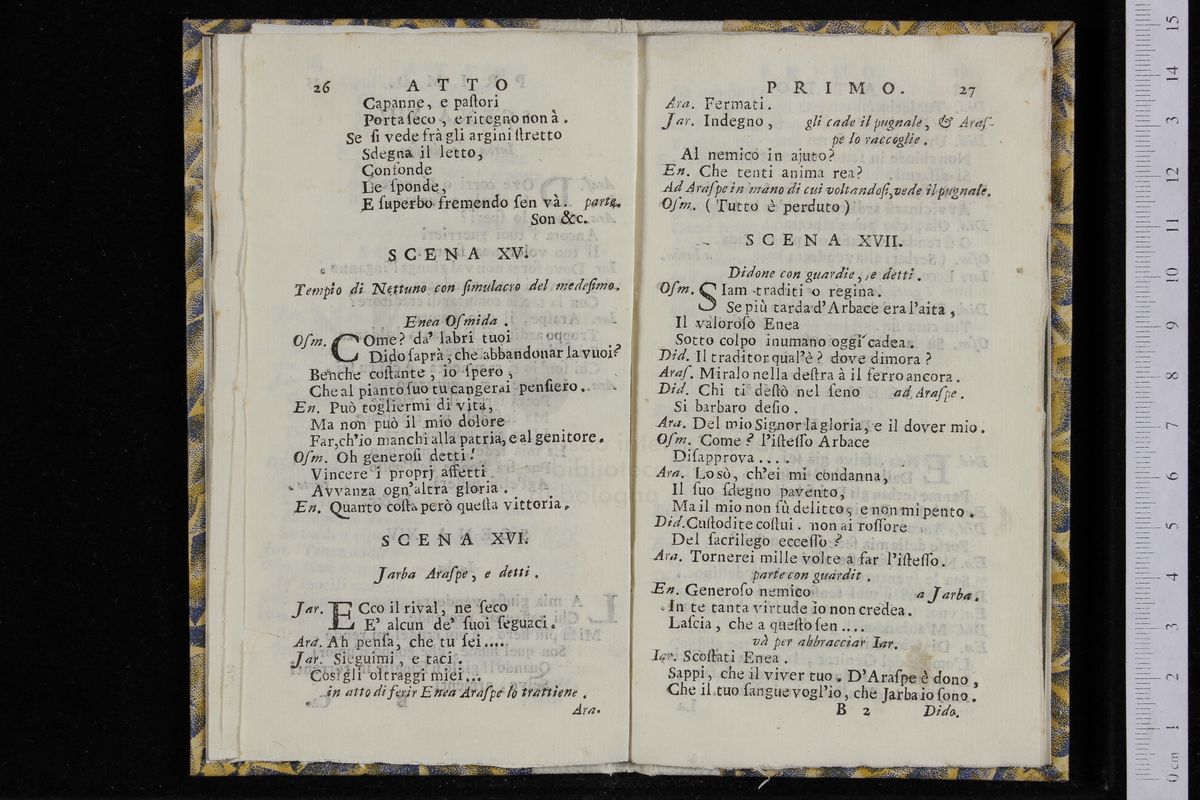 26 ATTO
Capanne, e paſtori
Porta ſeco, e ritegno non à.
Se ſi vede frà gli argini ſtretto
Sdegna il letto,
Confonde
Le ſponde,
E ſuperbo fremendo ſen và. parte.
Son &c.
SCENA XV.
Tempio di Nettuno con ſimulacro del medeſimo.
Enea Oſmida.
Oſm. COme? da' labri tuoi
Dido ſaprà, che abbandonar la vuoi?
Benche coſtante, io ſpero,
Che al pianto ſuo tu cangerai penſiero.
En. Può togliermi di vita,
Ma non può il mio dolore
Far, ch'io manchi alla patria, e al genitore.
Oſm. Oh generoſi detti!
Vincere i proprj affetti
Avvanza ogn'altra gloria.
En. Quanto coſta però queſta vittoria.
SCENA XVI.
Jarba Araſpe, e detti.
Jar. ECco il rival, ne ſeco
E' alcun de' ſuoi ſeguaci.
Ara. Ah penſa, che tu ſei....
Jar. Sieguimi, e taci.
Così gli oltraggi miei...
in atto di ferir Enea Araſpe lo trattiene.
Ara.
PRIMO. 27
Ara. Fermati.
Jar. Indegno, gli cade il pugnale, & Araſ-
pe lo raccoglie.
Al nemico in ajuto?
En. Che tenti anima rea?
Ad Araſpe in mano di cui voltandoſi, vede il pugnale.
Oſm. (Tutto è perduto)
SCENA XVII.
Didone con guardie, e detti.
Oſm. SIam traditi o regina.
Se più tarda d'Arbace era l'aita,
Il valoroſo Enea
Sotto colpo inumano oggi cadea.
Did. Il traditor qual'è? dove dimora?
Araſ. Miralo nella deſtra à il ferro ancora.
Did. Chi ti deſtò nel ſeno ad Araſpe.
Si barbaro deſio.
Ara. Del mio Signor la gloria, e il dover mio.
Oſm. Come? l'iſteſſo Arbace
Diſapprova....
Ara. Lo sò, ch'ei mi condanna,
Il ſuo ſdegno pavento,
Ma il mio non fù delitto, e non mi pento.
Did. Cuſtodite coſtui. non ai roſſore
Del ſacrilego ecceſſo?
Ara. Tornerei mille volte a far l'iſteſſo.
parte con guardie.
En. Generoſo nemico a Jarba.
In te tanta virtude io non credea.
Laſcia, che a queſto ſen....
và per abbracciar Iar.
Iar. Scoſtati Enea.
Sappi, che il viver tuo. D'Araſpe è dono,
Che il tuo ſangue vogl'io, che Jarba io ſono.
B 2 Dido.